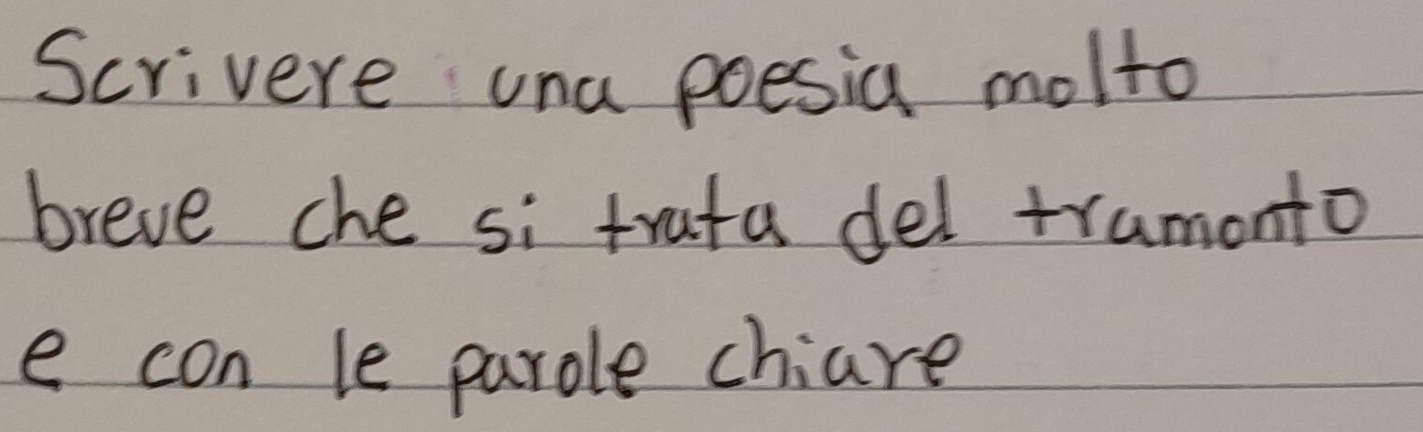 Scrivere una poesia molto
breve che si trata del tramonto
e con le parole chiare